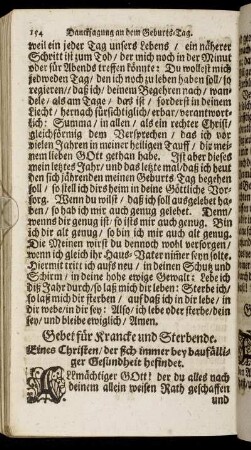 154 Dancksagung an dem Geburts-Tag.
weil ein jeder Tag unsers Lebens / ein näherer
Schritt ist zum Tod / der mich noch in der Minut
oder für Abends treffen könnte: Du wollest mich
jedweden Tag / den ich noch zu leben haben soll / so
regieren / daß ich / deinem Begehren nach / wan-
dele / als am Tage / das ist / forderst in deinem
Liecht / hernach fürsichdiglich / erbar / verantwort-
lich: Summa / in allen / als ein rechter Christ /
gleichförmig dem Versprechen / das ich vor
vielen Jahren in meiner heiligen Tauff / dir mei-
nem lieben GOtt gethan habe. Ist aber dieses
mein letztes Jahr / und das letzte mal / daß ich heut
den sich jährenden meinen Geburts Tag begehen
soll / so stell ich dirs heim in deine Göttliche Vor-
sorg. Wenn du wilst / daß ich soll ausgelebet ha-
ben / so hab ich mir auch genug gelebet. Denn /
wenns dir genug ist / so ists mir auch genug. Bin
ich dir alt genug / so bin ich mir auch alt genug.
Die Meinen wirst du dennoch wohl versorgen /
wenn gleich ihr Haus-Vater nimer seyn solte.
Hiermit tritt ich aufs neu / in deinen Schutz und
Schirm / in deine hohe ewige Gewalt: Lebe ich
diß Jahr durch / so laß mich dir leben: Sterbe ich /
so laß mich dir sterben / auf daß ich in dir lebe / in
dir webe / in dir sey: Also / ich lebe oder sterbe / dein
sey / und bleibe ewiglich / Amen.
Gebet für Krancke und Sterbende.
Eines Christen / der sich immer bey baufälli-
ger Gesundheit befindet.
ALlmächtiger GOtt! der du alles nach
deinem allein weisen Rath geschaffen
und